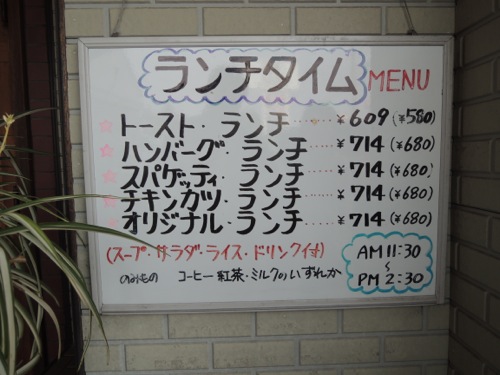 ランチタイム MENU
☆ トースト・ランチ ‥‥ ¥609 (¥580)
☆ ハンバーグ・ランチ ‥‥ ¥714 (¥680)
☆ スパゲッティ・ランチ ‥‥ ¥714 (¥680)
☆ チキンカツ・ランチ ‥‥ ¥714 (¥680)
☆ オリジナル・ランチ ‥‥ ¥714 (¥680)
(スープ・サラダ・ライス・ドリンク付)
のみもの コーヒー 紅茶・ミルクのいずれか
AM 11:30
〜
PM 2:30